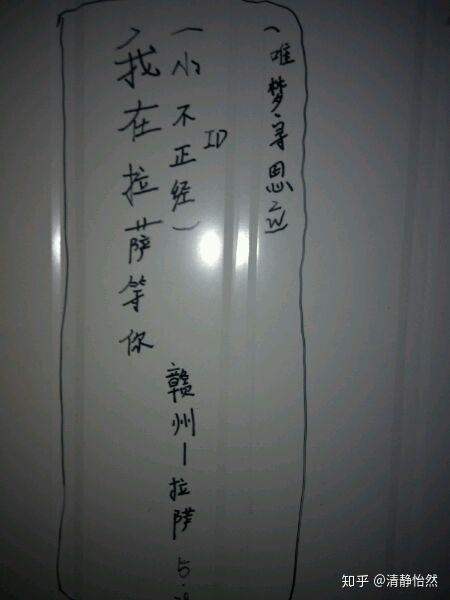 （唯梦寻思
（小不正经）ID
赣州—拉萨 5.
我在拉萨等你
知乎 @清静怡然